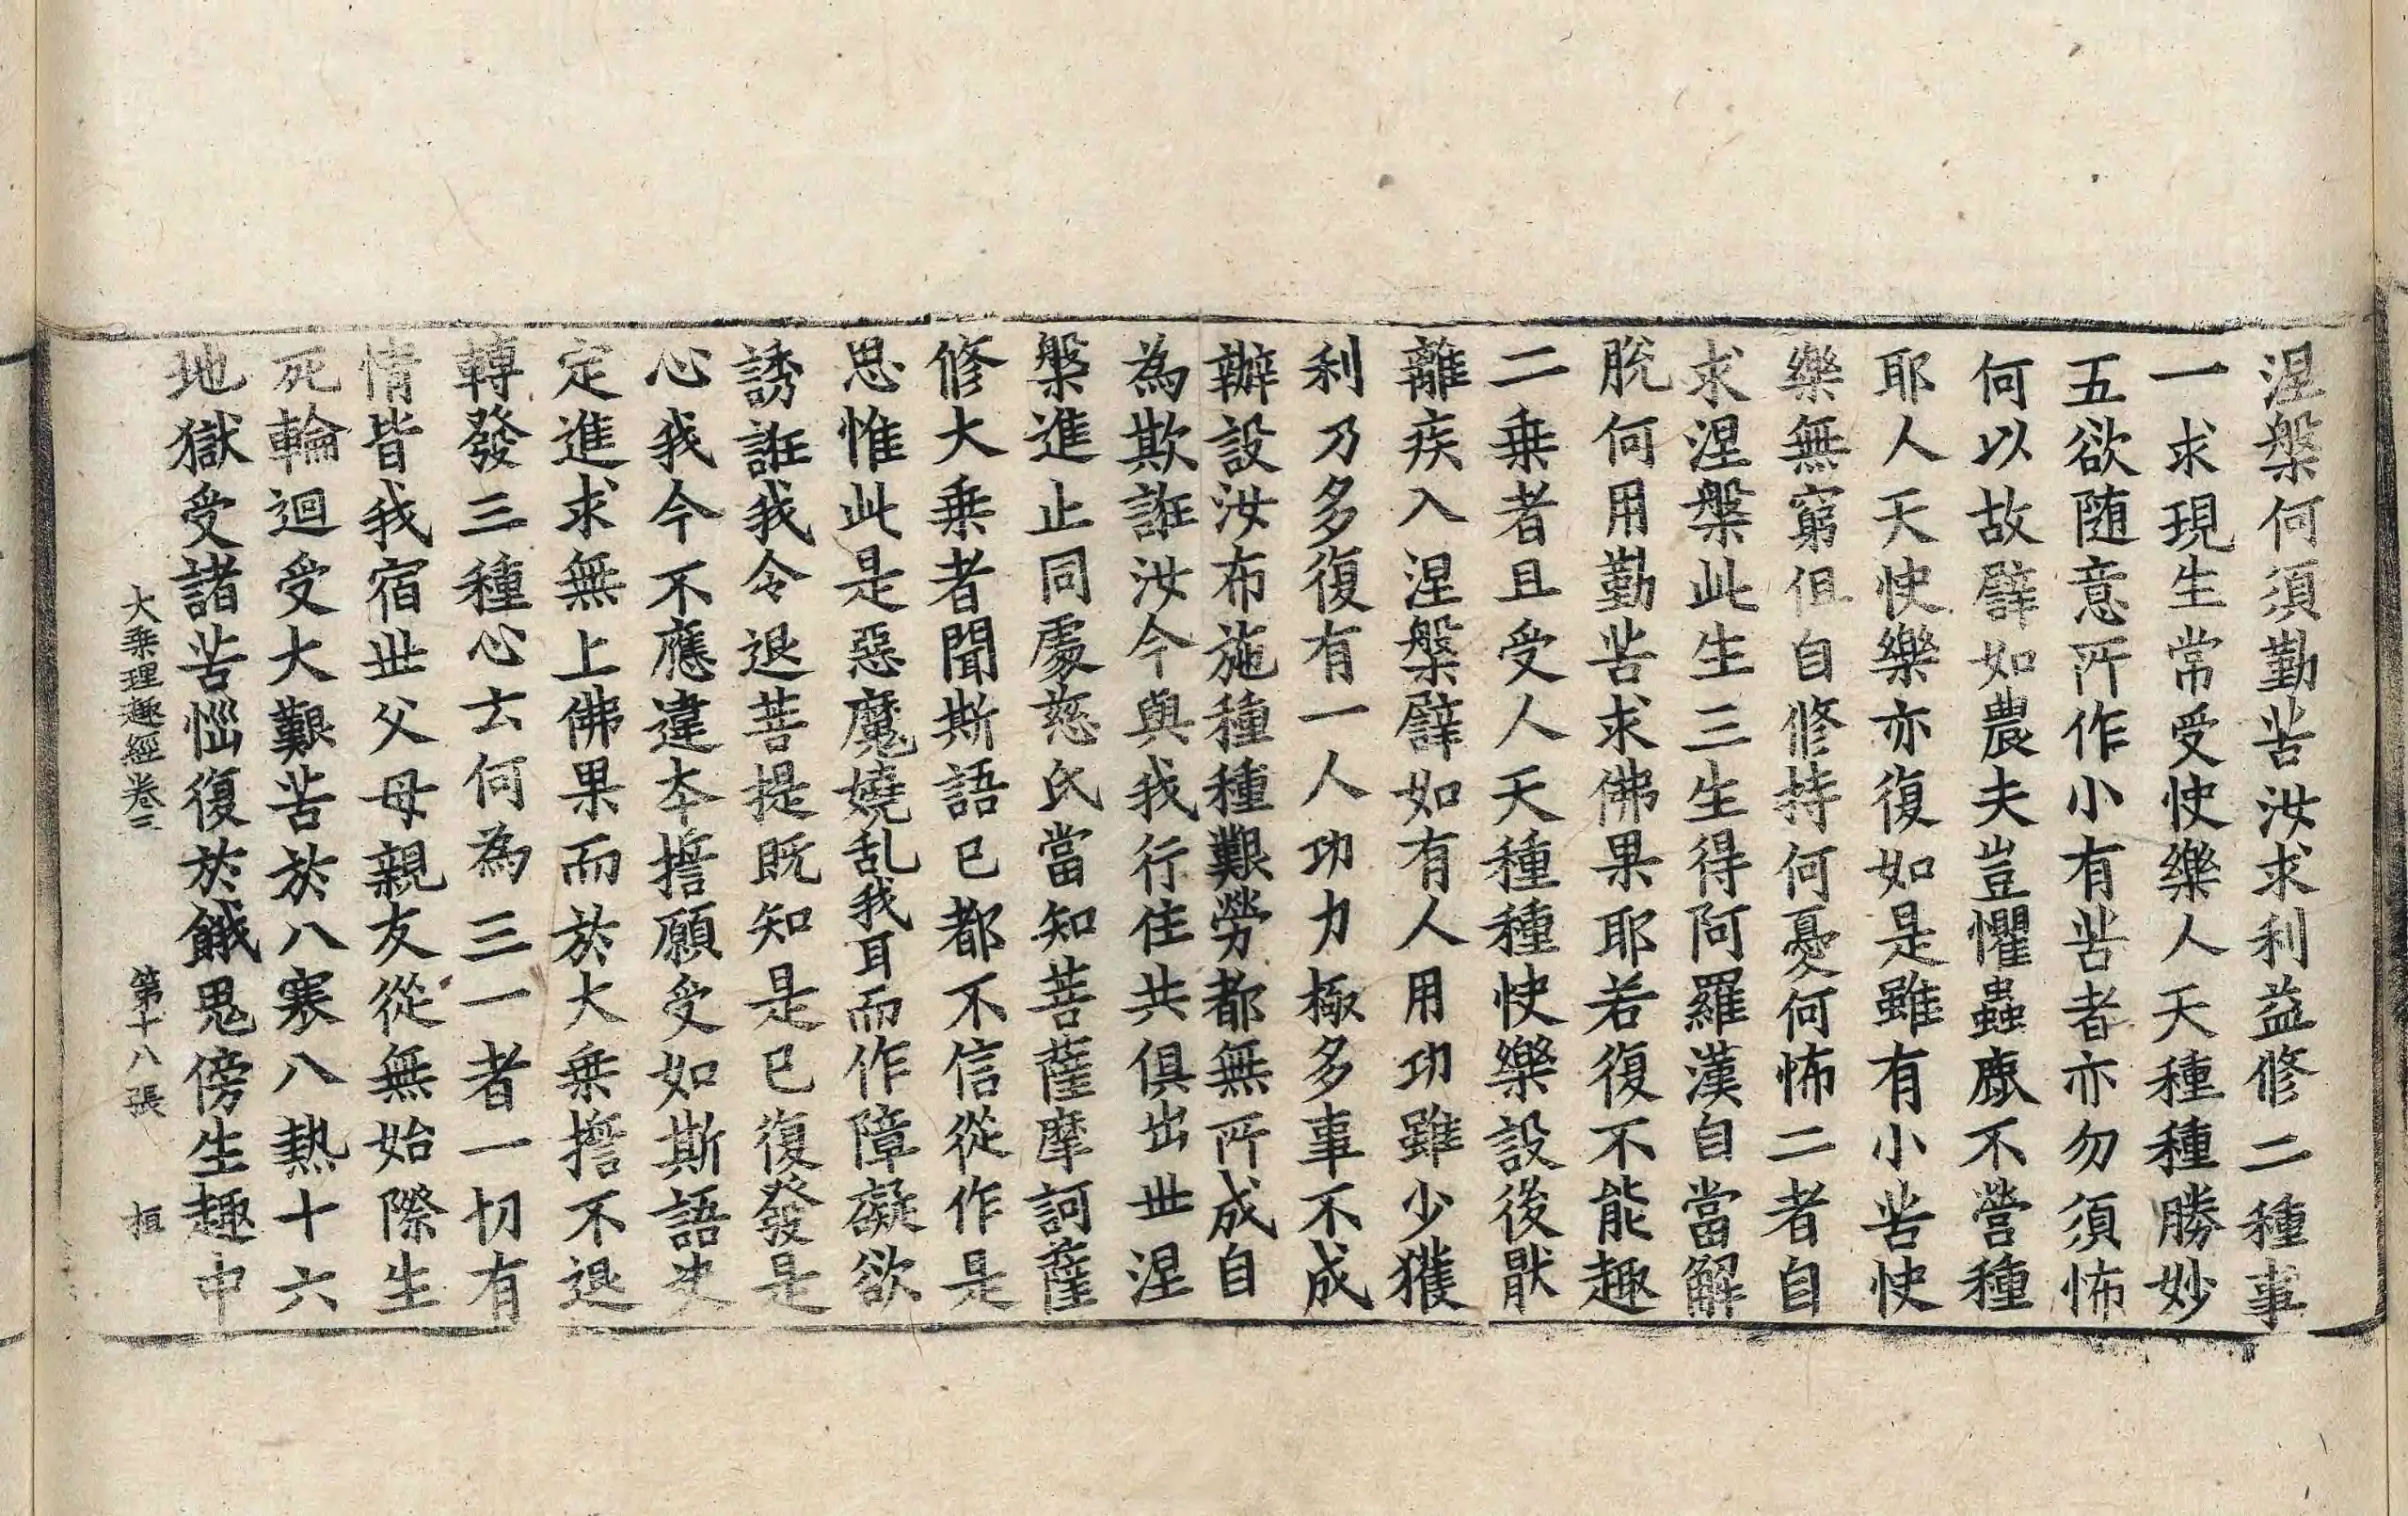 涅槃何須勤苦汝求利益修二種事
一求現生常受快樂人天種種勝妙
五欲随意所作小有苦者亦勿須怖
何以故譬如農夫豈懼蟲鹿不營種
耶人天快樂亦復如是雖有小苦快
樂無窮但自修持何憂何怖二者自
求涅槃此生三生得阿羅漢自當解
脫何用勤苦求佛果耶若復不能趣
二乗者且受人天種種快樂設後猒
離疾入涅槃譬如有人用功雖少獲
利乃多復有一人功力極多事不成
辦設汝布施種種艱勞都無所成自
為欺誑汝今與我行住共俱出世涅
槃進止同處慈氏當知菩薩摩訶薩
修大乗者聞斯語已都不信從作是
思惟此是惡魔嬈乱我耳而作障礙欲
誘誑我令退菩提既知是已復發是
心我今不應違夲擔願受如斯語史
定進求無上佛果而於大乗擔不退
轉發三種心云何為三一者一切有
情皆我宿世父母親友從無始際生
死輪迴受大艱苦於八寒八熱十六
地獄受諸苦惱復於餓鬼傍生趣中
大乗理趣經卷三 第十八張 桓